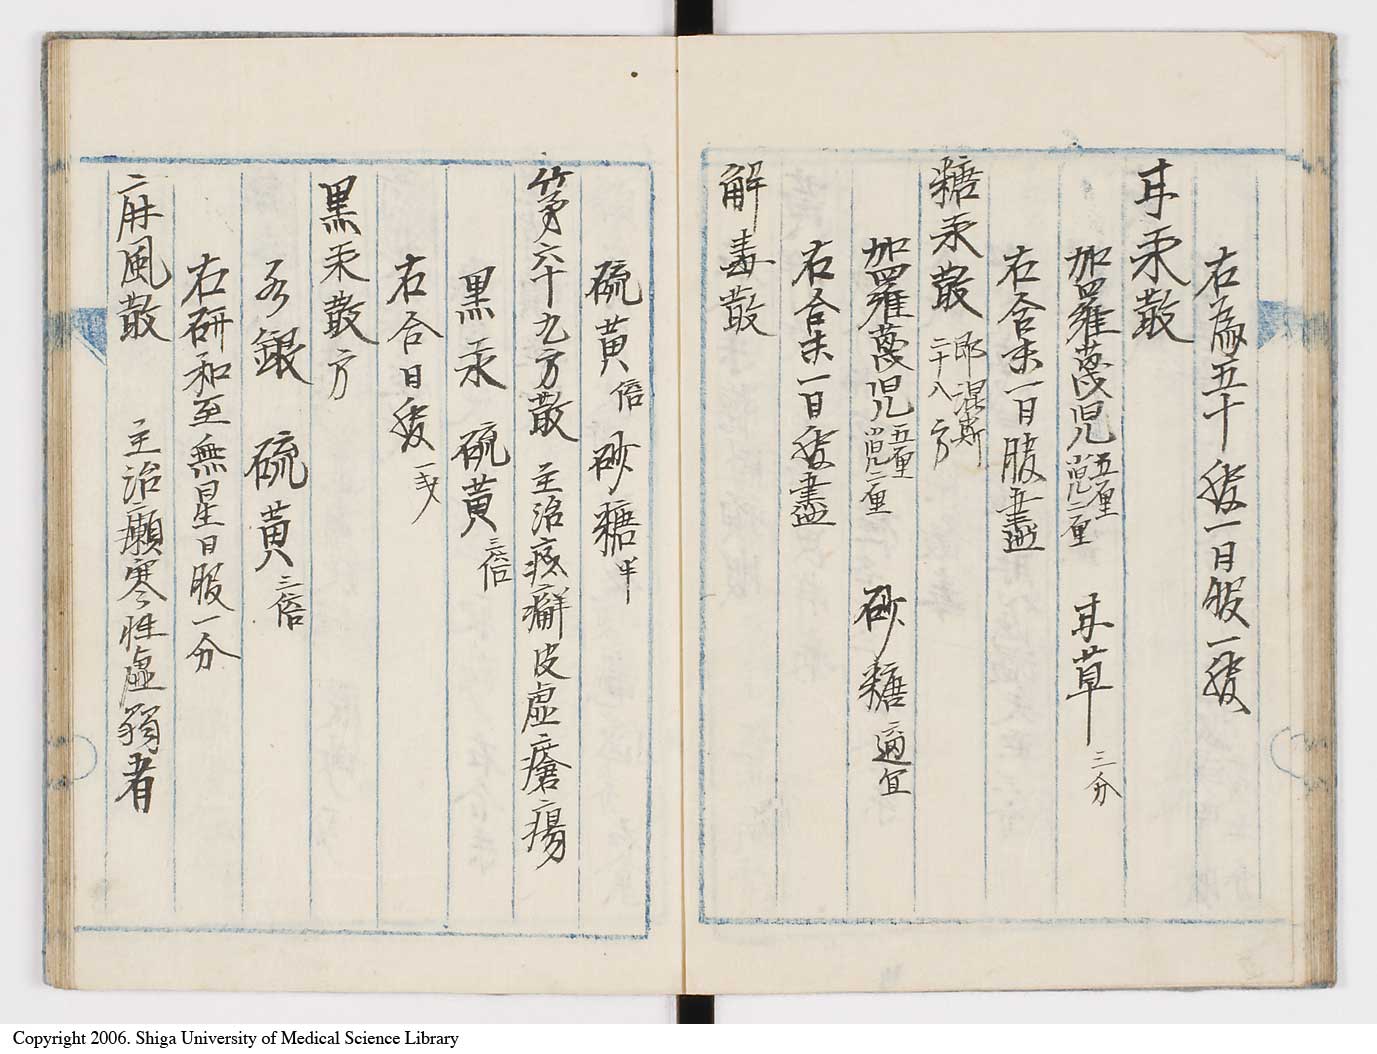 右為五十後一日服一後
甘汞散
加羅蔑児五厘小児二厘 甘草三分
右合末一日服盡
糖汞散 郎混斯二十八方
加羅蔑児五厘小児二厘 砂糖適宜
右合末一日後盡
解毒散
硫黄倍 砂糖半
第六十九方散 主治疥癬皮虚瘡瘍
黒汞 硫黄三倍
右合日後
黒汞散方
水銀 硫黄三倍
右研和至無星日服一分
麻風散 主治癩寒性虚弱者
Copyright 2006. Shiga University of Medical Science Library